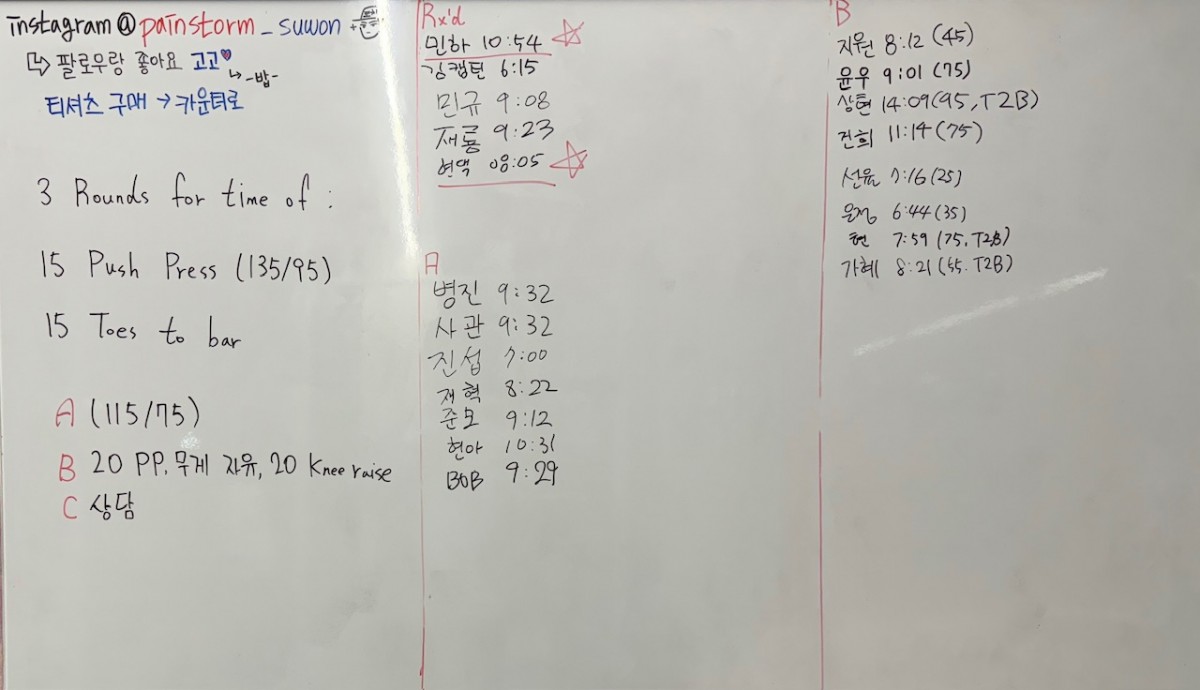 instagram @painstorm_suwon
↳ 팔로우랑 좋아요 고고♥
↳ -밥-
티셔츠 구매 → 카운터로
3 Rounds for time of :
15 Push Press (135/95)
15 Toes to bar
A (115/75)
B 20 PP, 무게 자유, 20 Knee raise
C 상담
Rx'd
민하 10:54 ☆
김캡틴 6:15
민규 9:08
재룡 9:23
현액 08:05 ☆
A
병진 9:32
사관 9:32
진섭 7:00
재혁 8:22
준모 9:12
현아 10:31
BOB 9:29
B
지원 8:12 (45)
윤우 9:01 (75)
상현 14:09 (95, T2B)
건희 11:14 (75)
선율 7:16 (25)
은정 6:44 (35)
현 7:59 (75, T2B)
가혜 8:21 (55. T2B)